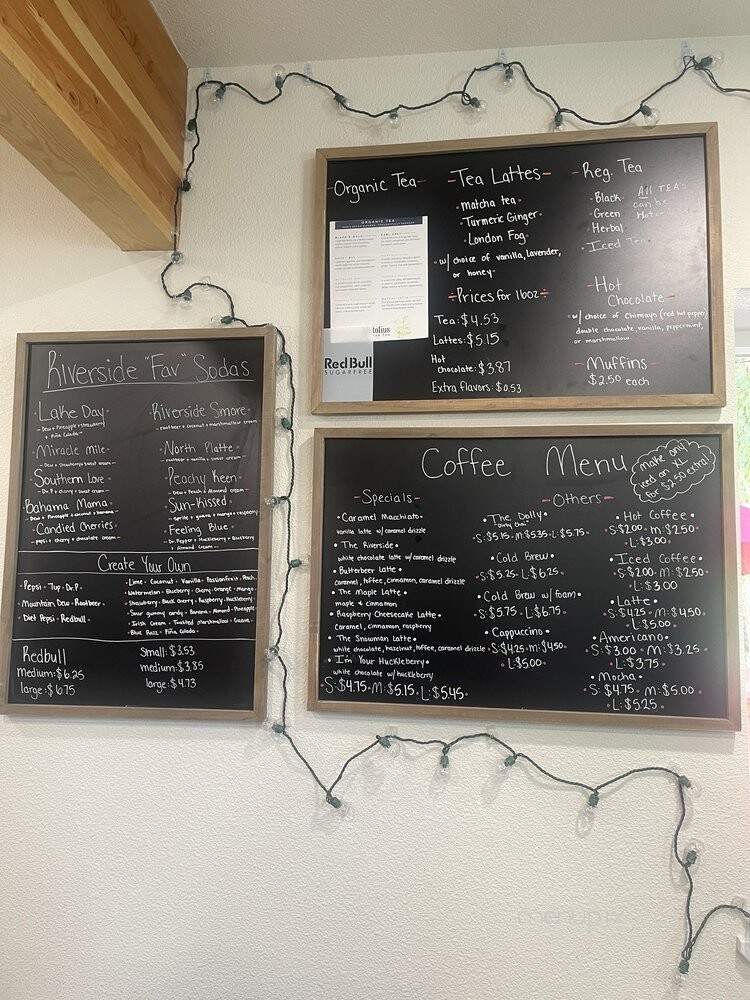 Riverside "Fav" Sodas
Lake Day
Dew + Pineapple + strawberry
+ Piña Colada
Miracle Mile
Dew + Strawberry + sweet cream
Southern Love
Dr. P + cherry + sweet cream
Bahama Mama
Dew + Pineapple + coconut + banana
Candied Cherries
pepsi + cherry + chocolate cream
Riverside Smore
rootbeer + coconut + marshmallow cream
North Platte
rootbeer + vanilla + sweet cream
Peachy Keen
Dew + Peach + Almond cream
Sun-Kissed
Sprite + guava + mango + raspberry
Feeling Blue
Dr. Pepper + Huckleberry + Blueberry
+ Almond Cream
Create Your Own
• Pepsi - 7up - Dr.P •
• Mountain Dew - Rootbeer •
• Diet Pepsi - Redbull •
• Lime - Coconut - Vanilla - Passionfruit - Peach
• Watermelon - Blueberry - Cherry - orange - Mango
• Strawberry - Black Cherry - Raspberry - Huckleberry
• Sour gummy candy - Banana - Almond - Pineapple
• Irish Cream - Toasted marshmallow - Guava
• Blue Razz - Piña Colada •
Redbull
medium: $6.25
large: $6.75
Small: $3.53
medium: $3.85
large: $4.73
-Organic Tea-
ORGANIC TEA
RedBull
SUGARFREE
-Tea Lattes-
• matcha tea •
• Turmeric Ginger •
• London Fog •
• w/ choice of vanilla, lavender,
or honey •
÷Prices for 16oz÷
Tea: $4.53
Lattes: $5.15
Hot
chocolate: $3.87
Extra flavors: $0.53
-Reg. Tea
• Black
• Green
• Herbal
• Iced Tea
All TEAs
can be
Hot or
-Hot
Chocolate-
• w/ choice of chimayo (red hot pepper)
double chocolate, vanilla, peppermint,
or marshmallow.
-Muffins-
$2.50 each
Coffee Menu
Make any
iced an XL
for $2.50 extra!
-Specials-
• Caramel Macchiato •
vanilla latte w/ caramel drizzle
• The Riverside •
white chocolate latte w/ caramel drizzle
• Butterbeer Latte •
caramel, toffee, cinnamon, caramel drizzle
• The Maple Latte •
maple & cinnamon
• Raspberry Cheesecake Latte •
Caramel, cinnamon, raspberry
• The Snowman Latte •
white chocolate, hazelnut, toffee, caramel drizzle
• I'm Your Huckleberry •
white chocolate w/ huckleberry
• S: $4.75 • M: $5.15 • L: $5.45 •
-Others-
• The Dolly •
Dirty Chai
• S: $5.15 • M: $5.35 • L: $5.75 •
• Cold Brew •
• S: $5.25 • L: $6.25 •
• Cold Brew w/ foam •
• S: $5.75 • L: $6.75 •
• Cappuccino •
• S: $4.25 • m: $4.50 •
• L: $5.00 •
• Hot Coffee •
• S: $2.00 • m: $2.50 •
• L: $3.00 •
• Iced Coffee •
• S: $2.00 • M: $2.50 •
• L: $3.00
• Latte •
• S: $4.25 • M: $4.50 •
• L: $5.00 •
• Americano •
• S: $3.00 • M: $3.25 •
• L: $3.75 •
• Mocha •
• S: $4.75 • M: $5.00 •
• L: $5.25 •
menupix